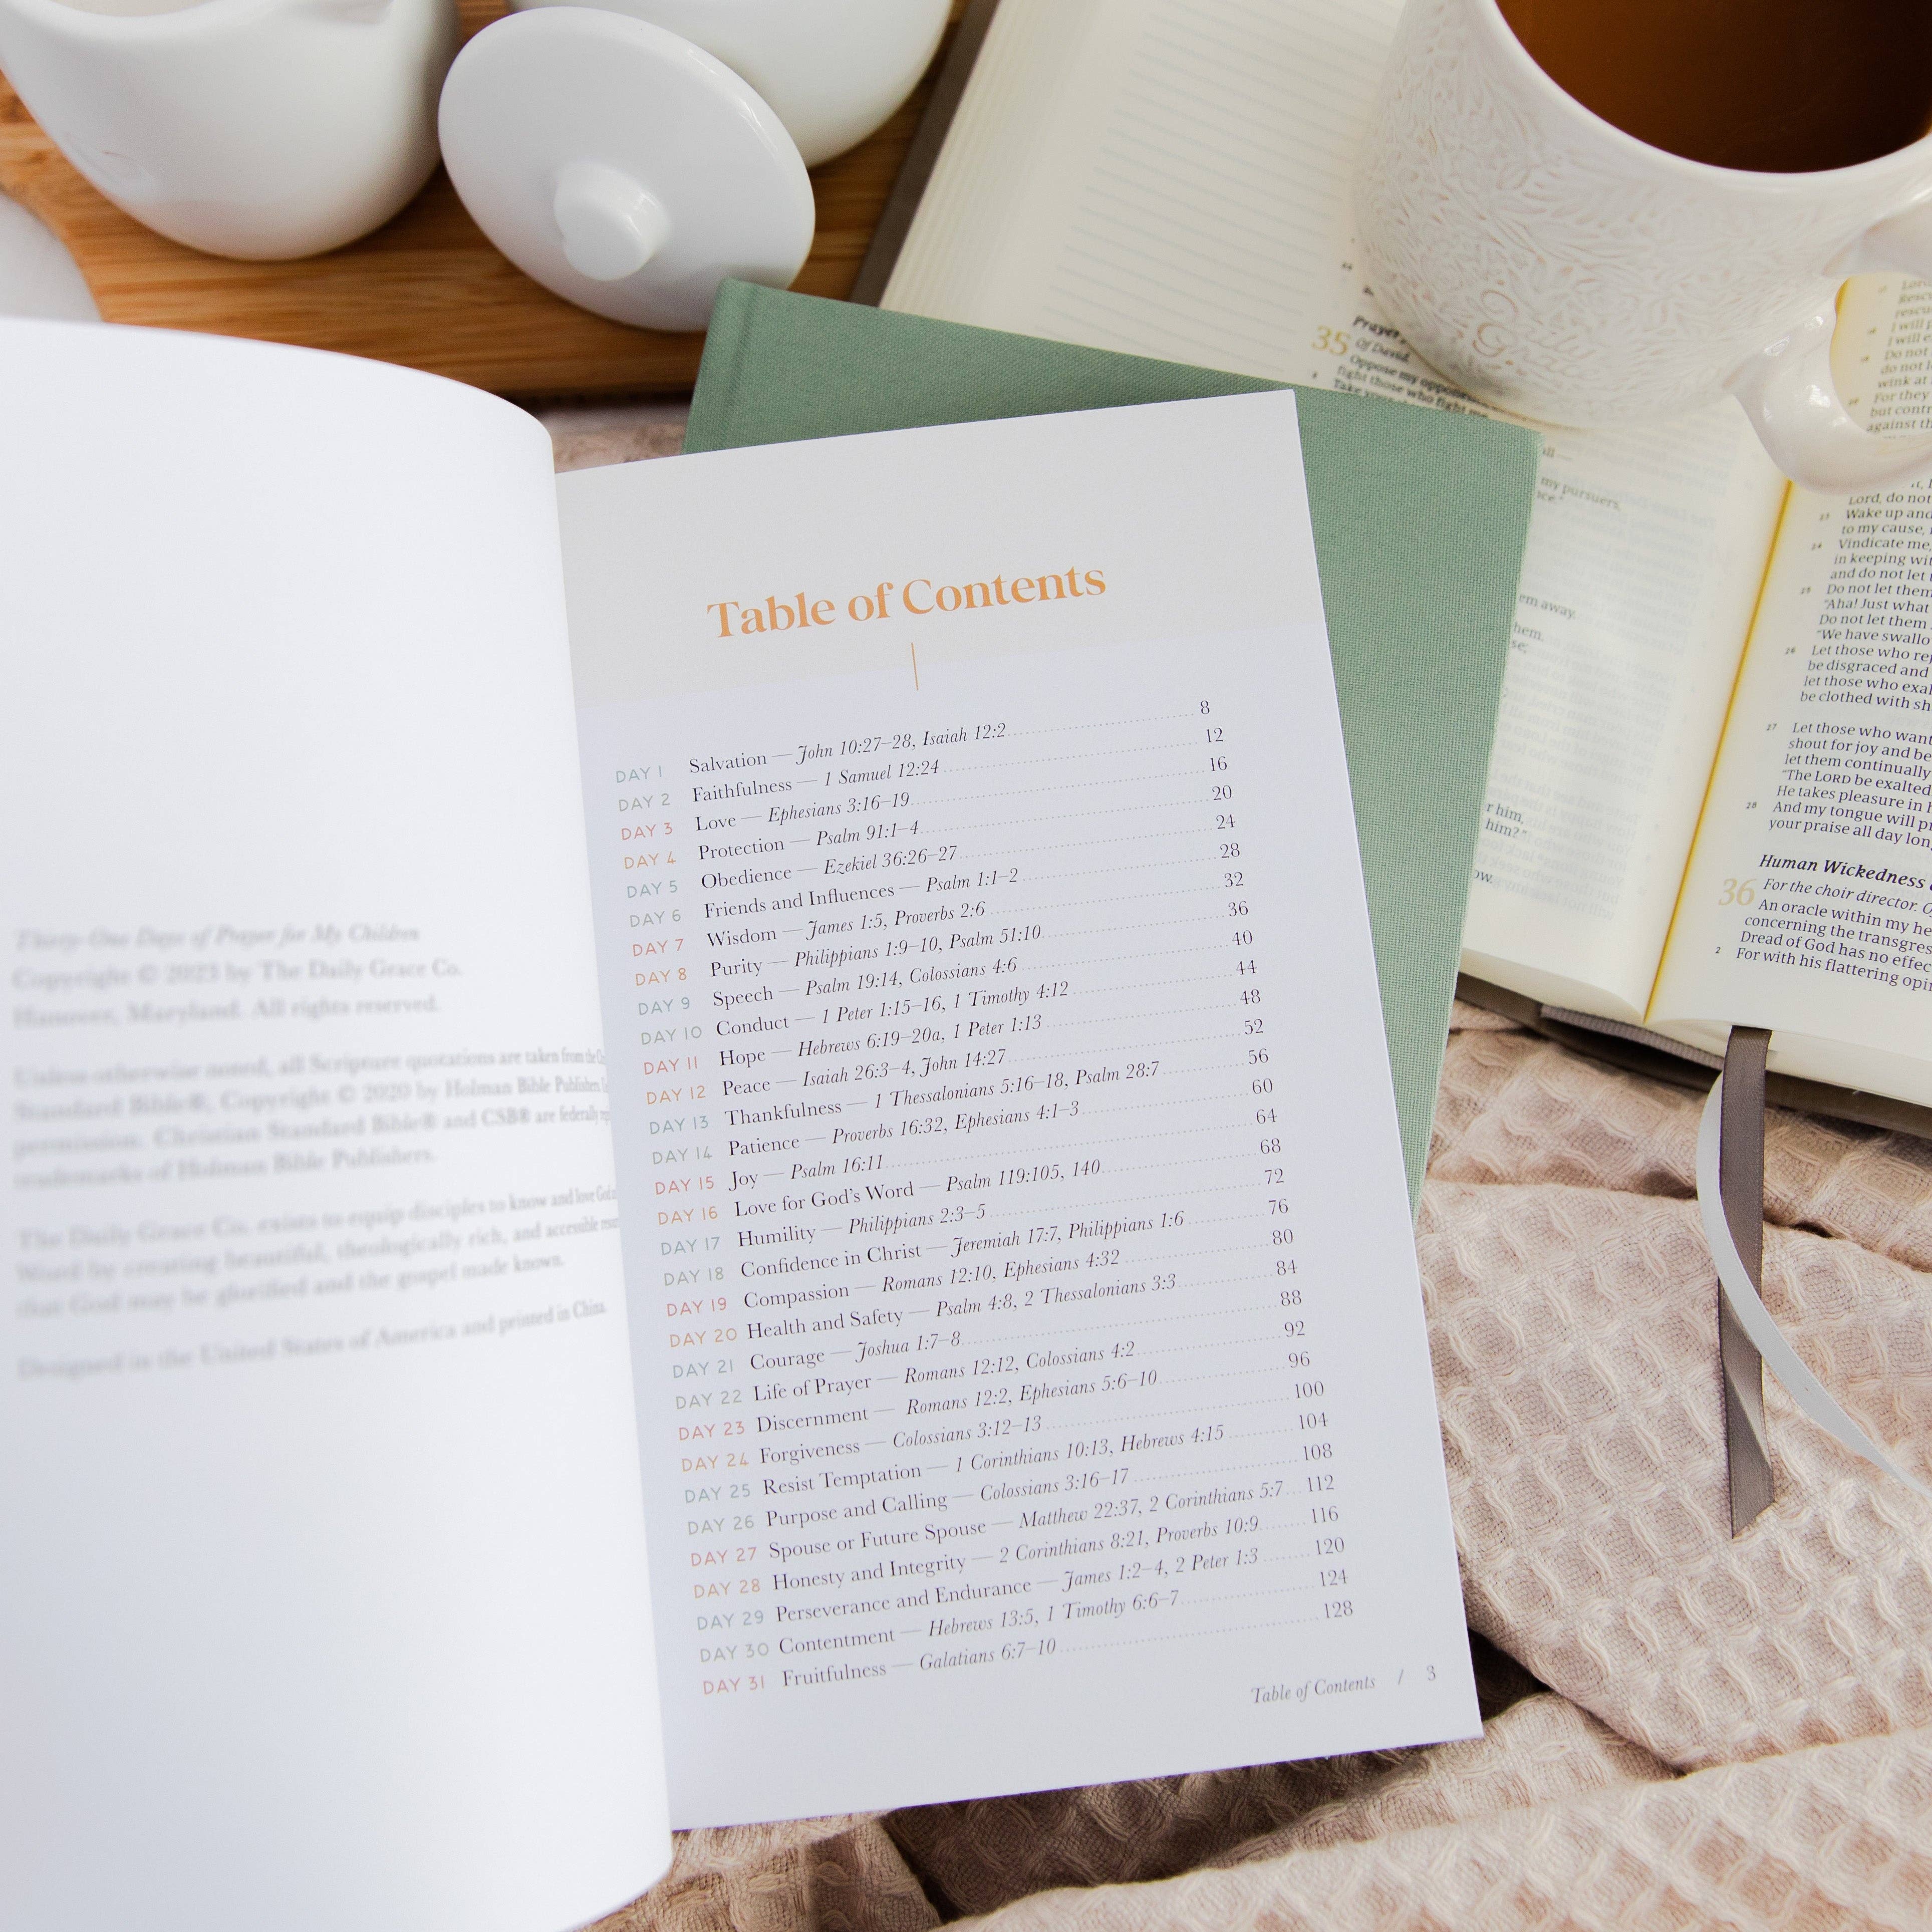 Thirty-One Days of Prayer for My Children
Copyright © 2023 by The Daily Grace Co.
Hanover, Maryland. All rights reserved.
Unless otherwise noted, all Scripture quotations are taken from the
Standard Bible®, Copyright © 2020 by Holman Bible Publishers
permission. Christian Standard Bible® and CSB® are federally
trademarks of Holman Bible Publishers.
The Daily Grace Co. exists to equip disciples to know and love
Word by creating beautiful, theologically rich, and accessible
that God may be glorified and the gospel made known.
Designed in the United States of America and printed in China.
Table of Contents
DAY 1 Salvation — John 10:27–28, Isaiah 12:2 8
DAY 2 Faithfulness — 1 Samuel 12:24 12
DAY 3 Love — Ephesians 3:16–19 16
DAY 4 Protection — Psalm 91:1–4 20
DAY 5 Obedience — Ezekiel 36:26–27 24
DAY 6 Friends and Influences — Psalm 1:1–2 28
DAY 7 Wisdom — James 1:5, Proverbs 2:6 32
DAY 8 Purity — Philippians 1:9–10, Psalm 51:10 36
DAY 9 Speech — Psalm 19:14, Colossians 4:6 40
DAY 10 Conduct — 1 Peter 1:15–16, 1 Timothy 4:12 44
DAY 11 Hope — Hebrews 6:19–20a, 1 Peter 1:13 48
DAY 12 Peace — Isaiah 26:3–4, John 14:27 52
DAY 13 Thankfulness — 1 Thessalonians 5:16–18, Psalm 28:7 56
DAY 14 Patience — Proverbs 16:32, Ephesians 4:1–3 60
DAY 15 Joy — Psalm 16:11 64
DAY 16 Love for God's Word — Psalm 119:105, 140 68
DAY 17 Humility — Philippians 2:3–5 72
DAY 18 Confidence in Christ — Jeremiah 17:7, Philippians 1:6 76
DAY 19 Compassion — Romans 12:10, Ephesians 4:32 80
DAY 20 Health and Safety — Psalm 4:8, 2 Thessalonians 3:3 84
DAY 21 Courage — Joshua 1:7–8 88
DAY 22 Life of Prayer — Romans 12:12, Colossians 4:2 92
DAY 23 Discernment — Romans 12:2, Ephesians 5:6–10 96
DAY 24 Forgiveness — Colossians 3:12–13 100
DAY 25 Resist Temptation — 1 Corinthians 10:13, Hebrews 4:15 104
DAY 26 Purpose and Calling — Colossians 3:16–17 108
DAY 27 Spouse or Future Spouse — Matthew 22:37, 2 Corinthians 5:7 112
DAY 28 Honesty and Integrity — 2 Corinthians 8:21, Proverbs 10:9 116
DAY 29 Perseverance and Endurance — James 1:2–4, 2 Peter 1:3 120
DAY 30 Contentment — Hebrews 13:5, 1 Timothy 6:6–7 124
DAY 31 Fruitfulness — Galatians 6:7–10 128
Table of Contents / 3
Prayer
35 Of David.
Oppose my
fight those who fight me
my pursuers
em away.
hem.
r him,
him?"
Lord, do not
23 Wake up and
to my cause,
24 Vindicate me,
in keeping
and do not let
25 Do not let them
"Aha! Just what
Do not let them
"We have
26 Let those who
be disgraced and
let those who
be clothed with
27 Let those who want
shout for joy and
let them continually
"The LORD be exalted
He takes pleasure in
28 And my tongue will
your praise all day
Human Wickedness
36 For the choir director.
An oracle within my
concerning the
Dread of God has no
2 For with his flattering